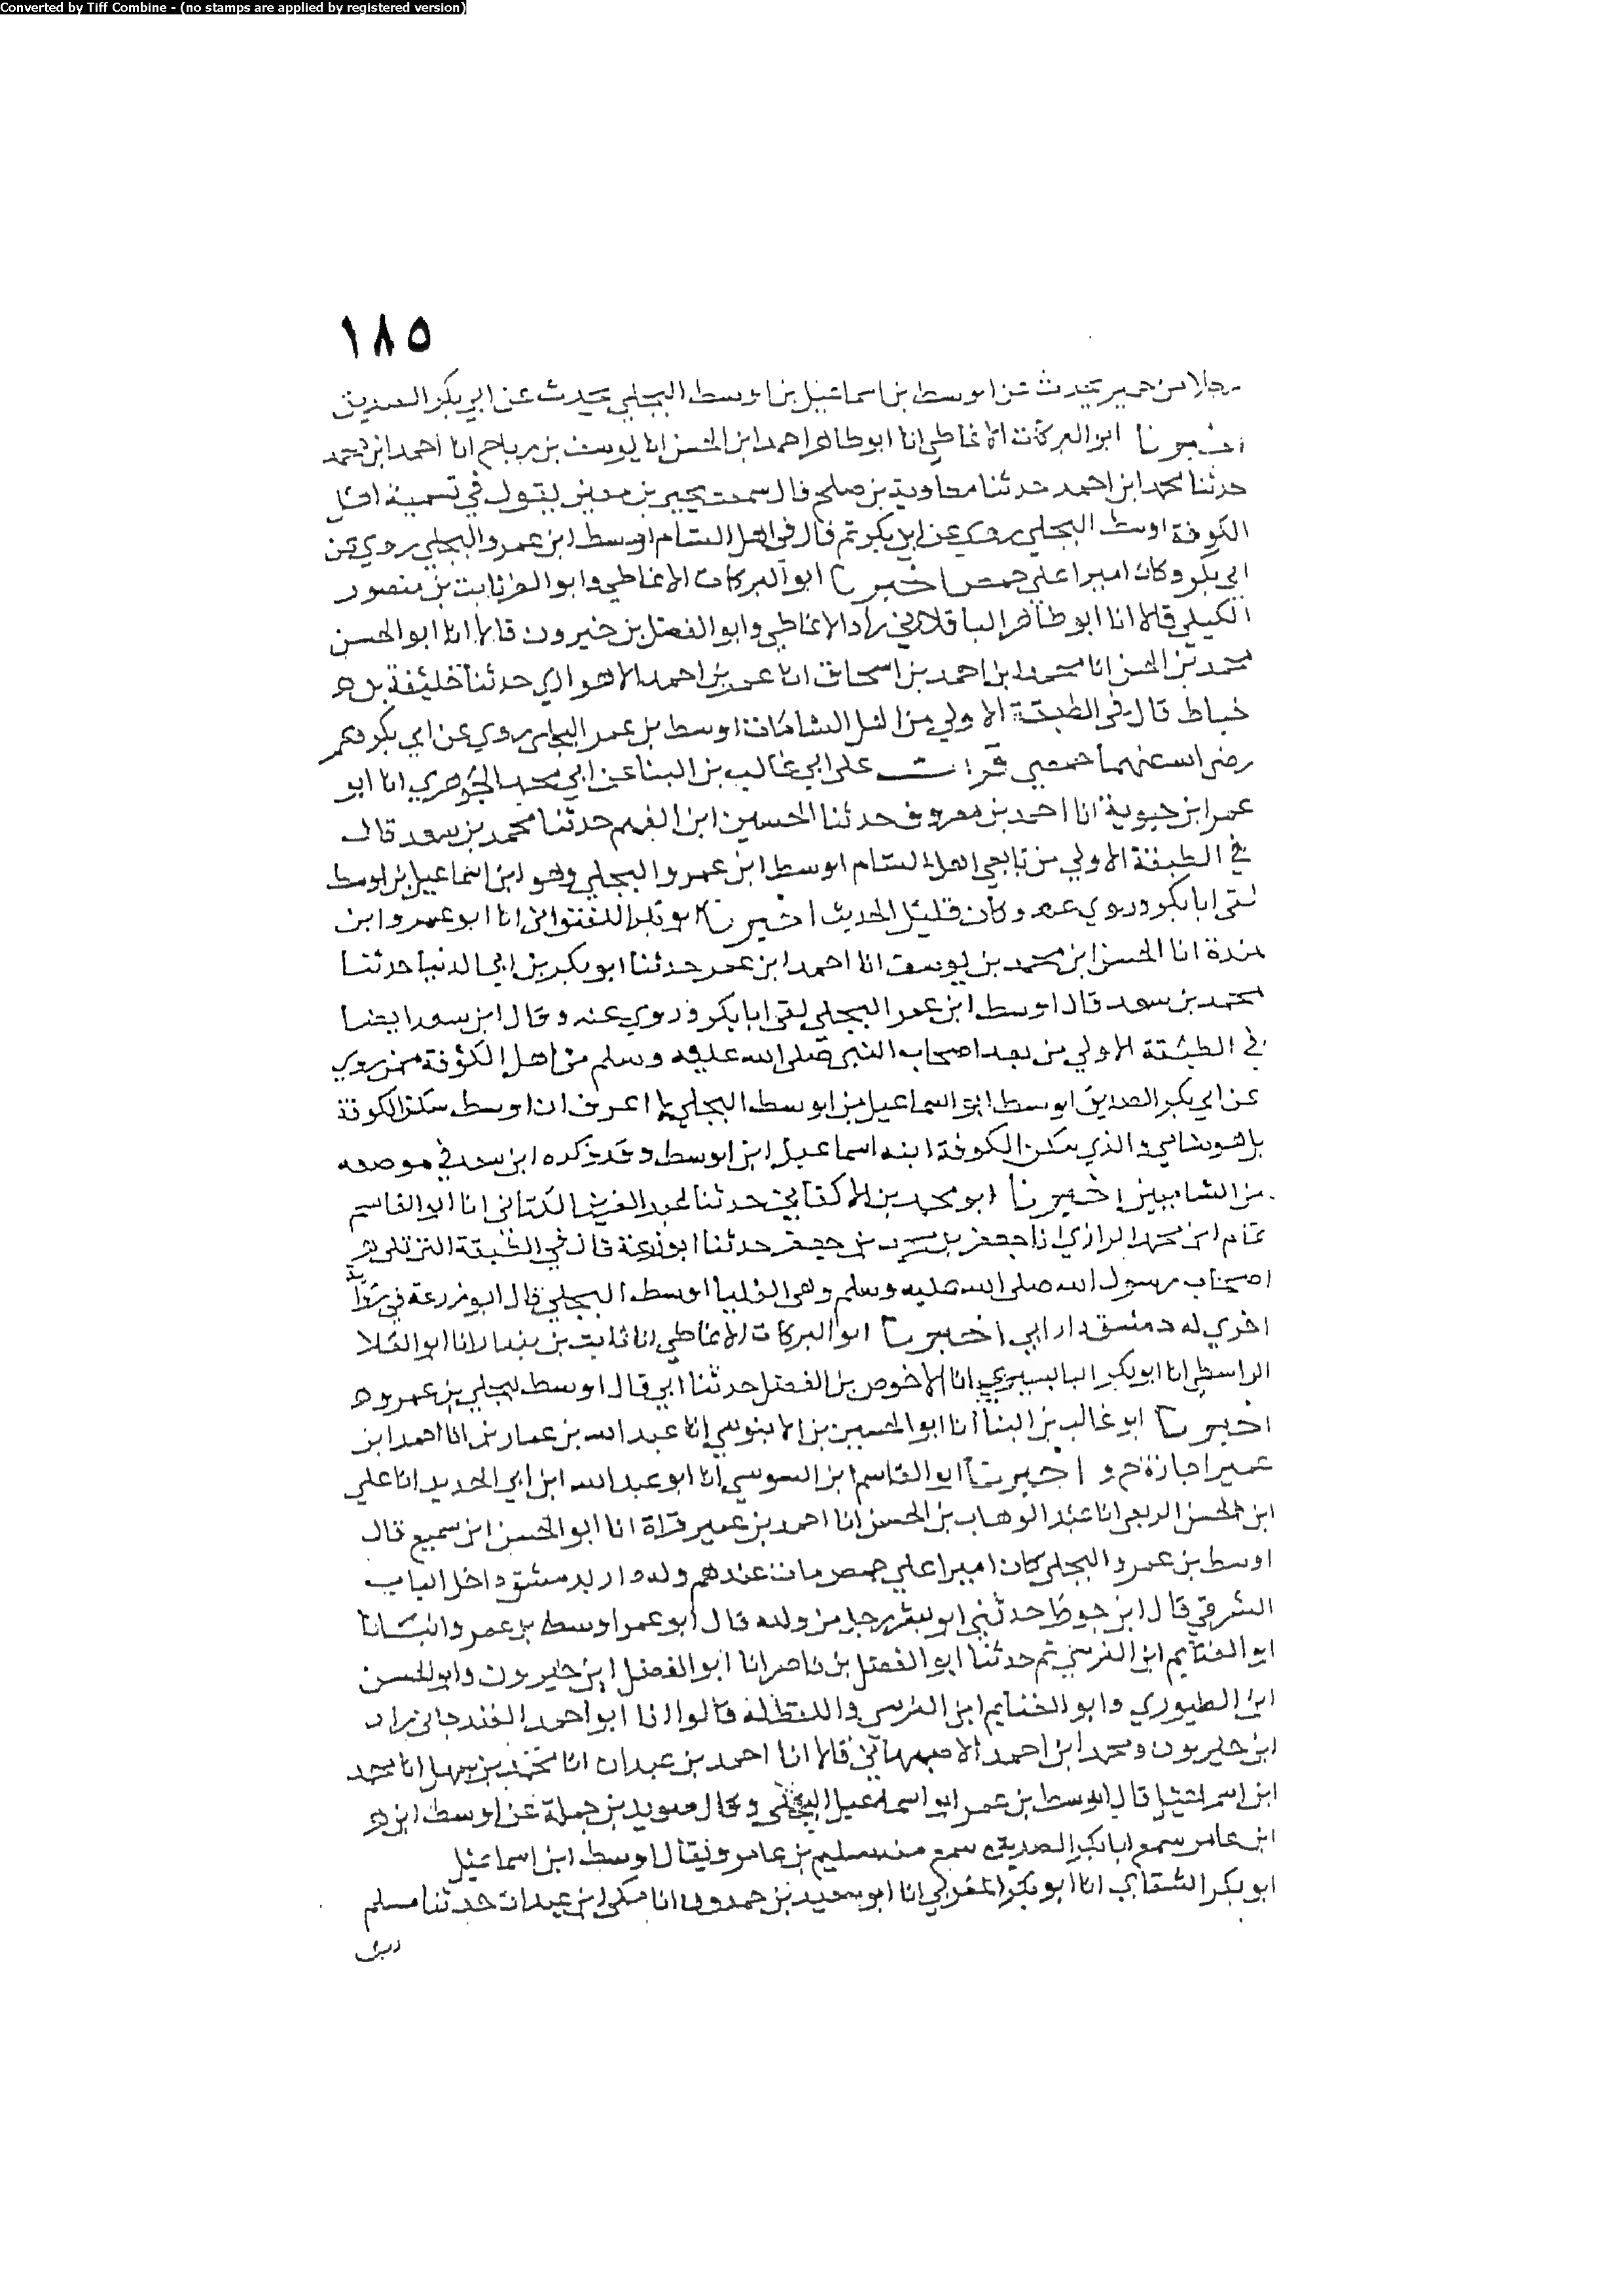 Converted by Tiff Combine - (no stamps are applied by registered version)
١٨٥
رجلا من حمير يحدث عن اوسط بن اسماعيل بن اوسط البجلي يحدث عن ابي بكر الصديق
اخبرنا ابو البركات الانماطي انا ابو طاهر احمد ابن الحسن انا يوسف بن رباح انا احمد ابن محمد
حدثنا محمد ابن احمد حدثنا معاوية بن صلح قال سمعت يحيى بن معين يقول في تسمية اهل
الكوفة اوسط البجلي روى عن ابي بكر ثم قال في اهل الشام اوسط ابن عمرو البجلي روي عن
ابي بكر وكان اميرا على حمص اخبرنا ابو البركات الانماطي وابو العز ثابت بن منصور
الكيلي قالا انا ابو طاهر الباقلاني زاد الانماطي وابو الفضل بن خيرون قالا انا ابو الحسن
محمد بن الحسن انا محمد ابن احمد بن اسحاق انا عمر بن احمد الاهوازي حدثنا خليفة بن
خياط قال في الطبقة الاولي من اهل الشامات اوسط بن عمر البجلي روي عن ابي بكر وعمر
رضى الله عنهما حمصي قرات على ابي غالب بن البنا عن ابي محمد الجوهري انا ابو
عمر ابن حيوية انا احمد بن معروف حدثنا الحسين ابن الفهم حدثنا محمد بن سعد قال
في الطبقة الاولي من تابعي اهل الشام اوسط ابن عمرو البجلي وهو ابن اسماعيل بن اوسط
لقى ابا بكر وروي عنه وكان قليل الحديث اخبرنا ابو بكر اللفتواني انا ابو عمرو ابن
مندة انا الحسن ابن محمد بن يوسف انا احمد ابن عمر حدثنا ابو بكر بن ابي الدنيا حدثنا
محمد بن سعد قال اوسط ابن عمر البجلي لقى ابا بكر وروي عنه وقال ابن سعد ايضا
في الطبقة الاولي من بعد اصحاب النبي صلى الله عليه وسلم من اهل الكوفة ممن روي
عن ابي بكر الصديق اوسط ابو اسماعيل بن اوسط البجلي ما اعرف ان اوسط سكن الكوفة
بل هو شامي والذي سكن الكوفة ابنه اسماعيل ابن اوسط وقد ذكره ابن سعد في موضعه
من الشاميين اخبرنا ابو محمد بن الاكفاني حدثنا عبد العزيز الكتاني انا ابو القاسم
تمام ابن محمد الرازي انا جعفر بن محمد بن جعفر حدثنا ابو زرعة قال في الطبقة التي تلي
اصحاب رسول الله صلى الله عليه وسلم وهي العليا اوسط البجلي قال ابو زرعة في رواية
اخري له دمشق دار ابي اخبرنا ابو البركات الانماطي انا ثابت بن بندار انا ابو العلا
الواسطي انا ابو بكر البابسيري انا الاخوص بن الفضل حدثنا ابي قال اوسط بجلي بن عمرو ه
اخبرنا ابو غالب بن البنا انا ابو الحسين بن الابنوسي انا عبد الله بن عمار بن انا احمد ابن
عمير اجازة ح و اخبرنا ابو القاسم ابن السوسي انا ابو عبد الله ابن ابي الحديد انا علي
ابن الحسن الربعي انا عبد الوهاب بن الحسن انا احمد بن عمير قراة انا ابو الحسن ابن سميع قال
اوسط بن عمرو البجلي كان اميرا علي حمص مات عندهم وله دار بدمشق داخل الباب
الشرقي قال ابن جوصا حدثني ابو بشر رجل من ولده قال ابو عمر اوسط بن عمرو انبانا
ابو الغنايم ابن النرسي ثم حدثنا ابو الفضل بن ناصر انا ابو الفضل ابن خيرون وابو الحسن
ابن الطيوري وابو الغنايم ابن النرسي واللفظ له قالوا انا ابو احمد الغندجاني زاد
ابن خيرون ومحمد ابن احمد الاصبهاني قالا انا احمد بن عبدان انا محمد بن سهل انا محمد
ابن اسماعيل قال اوسط بن عمر ابو اسماعيل البجلي وقال سويد بن حملة عن اوسط ابن
ابن عامر سمع ابا بكر الصديق سمع منه سليم بن عامر ويقال اوسط ابن اسماعيل
ابو بكر الشقاني انا ابو بكر المغربي انا ابو سعيد بن حمدون انا مكي ابن عبدان حدثنا مسلم